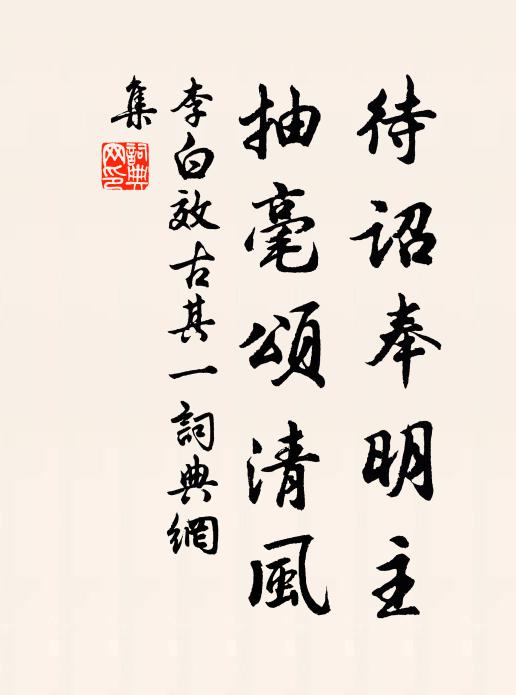 待詔奉明主
抽毫頌清風
李白效古其一詞典網
集
詞典
网印